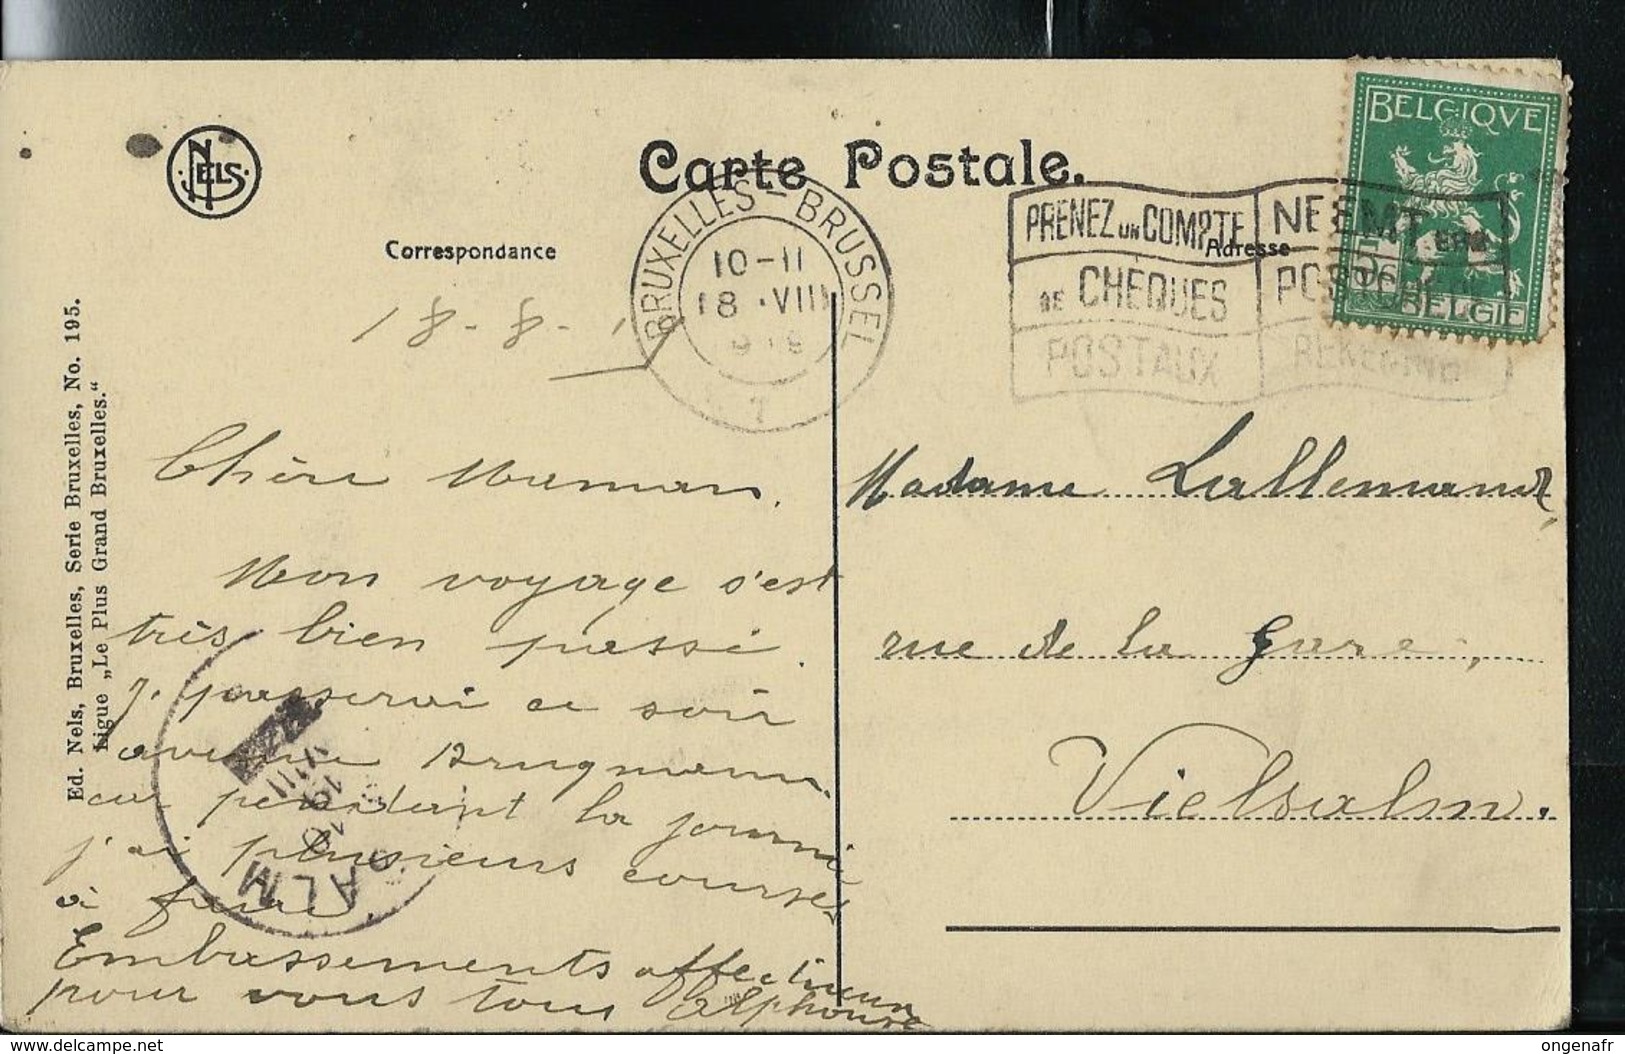 NELS
Carte Postale.
Correspondance
Adresse
BRUXELLES - BRUSSEL
10-11
18 VIII
1
PRENEZ UN COMPTE
DE CHÈQUES
POSTAUX
NEEMT
REKENING
BELGIQVE
5 5
BELGIË
Ed. Nels, Bruxelles, Serie Bruxelles, No. 195.
Ligue „Le Plus Grand Bruxelles."
18-8-19
Chère Maman.
Mon voyage s'est
très bien passé.
J. passerai ce soir
avenue Brugmann
car pendant la journé
j'ai plusieurs courses
à faire.
Embrassements affectueux
pour vous tous Alphonse
Madame Lallemand,
rue de la Gare,
Vielsalm.
VIII
SALM
delcampe.net
ongenafr